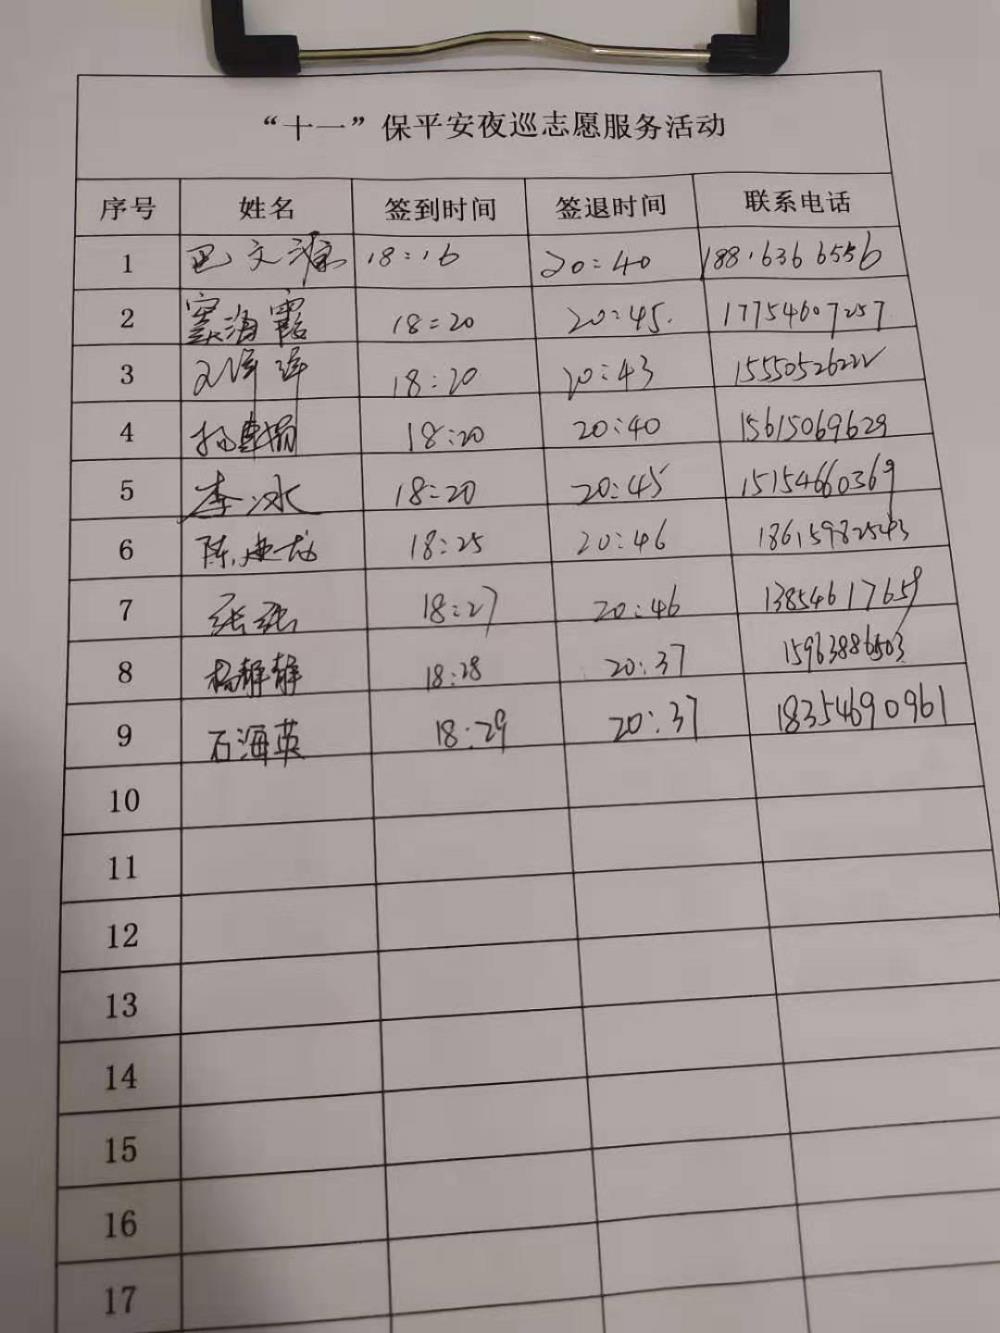 “十一”保平安夜巡志愿服务活动
序号 姓名 签到时间 签退时间 联系电话
1 巴文源 18:16 20:40 18816366556
2 窦海霞 18:20 20:45. 17754607257
3 18:20 20:43 15550526222
4 18:20 20:40 15615069629
5 李冰 18:20 20:45 15154660369
6 陈建龙 18:25 20:46 18615982543
7 张弛 18:27 20:46 13854617659
8 杨静静 18:28 20:37 15963886503
9 石海英 18:29 20:37 18354690961
10
11
12
13
14
15
16
17